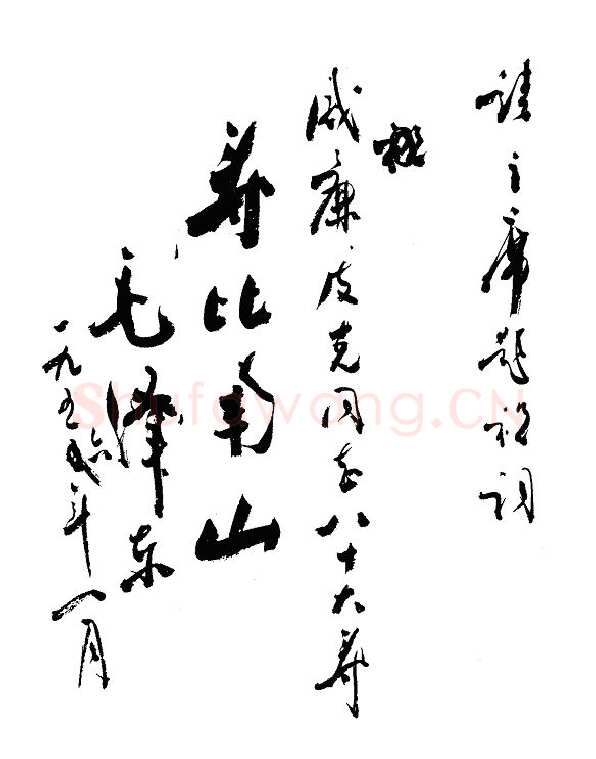 请主席题祝词
祝
威廉皮克同志八十大寿
寿比南山
毛泽东
一九五六年一月
Shufawang.CN